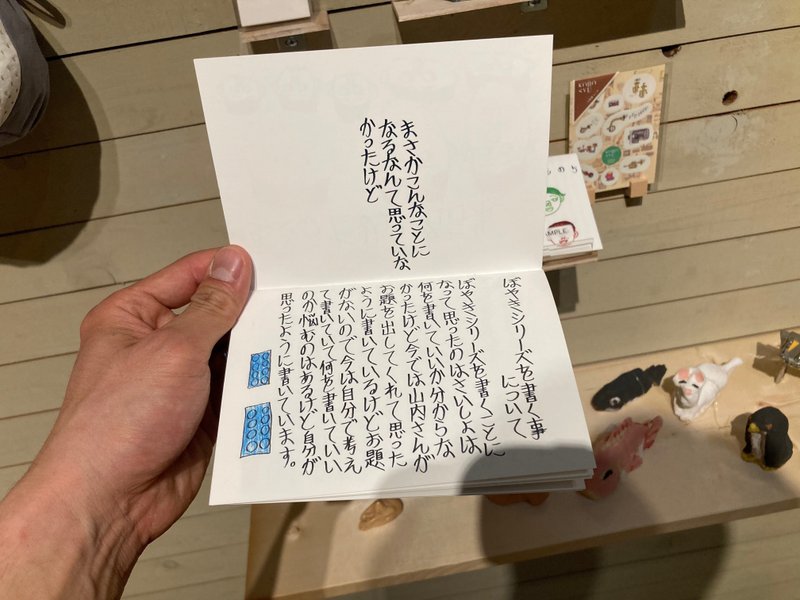 まさかこんなことに
なるなんて思っていな
かったけど
ぼやきシリーズを書く事
について、
ぼやきシリーズを書くことに
なって思ったのはさいしょは
何を書いていいか分からな
かったけど今では山内さんが
お題を出してくれて思った
ように書いているけどお題
がないので今は自分で考え
て書いていて何を書いていい
のか悩むのはあるけど自分が
思ったように書いています。